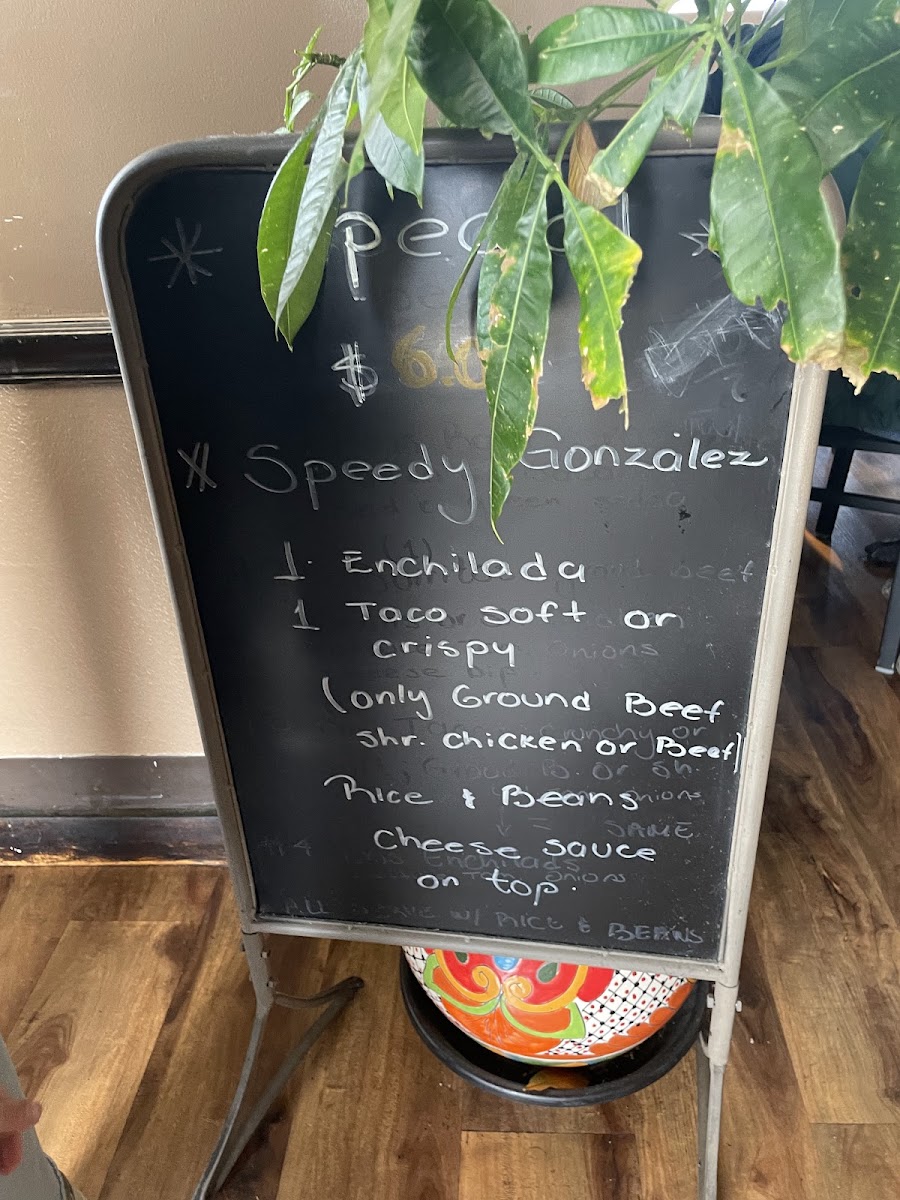 * pecial *
$ 6.0
* Speedy Gonzalez
1. Enchilada
1 Taco soft or
crispy
(only Ground Beef
shr. chicken or Beef)
Rice & Beans
Cheese sauce
on top.
ALL SAME W/ RICE & BEANS